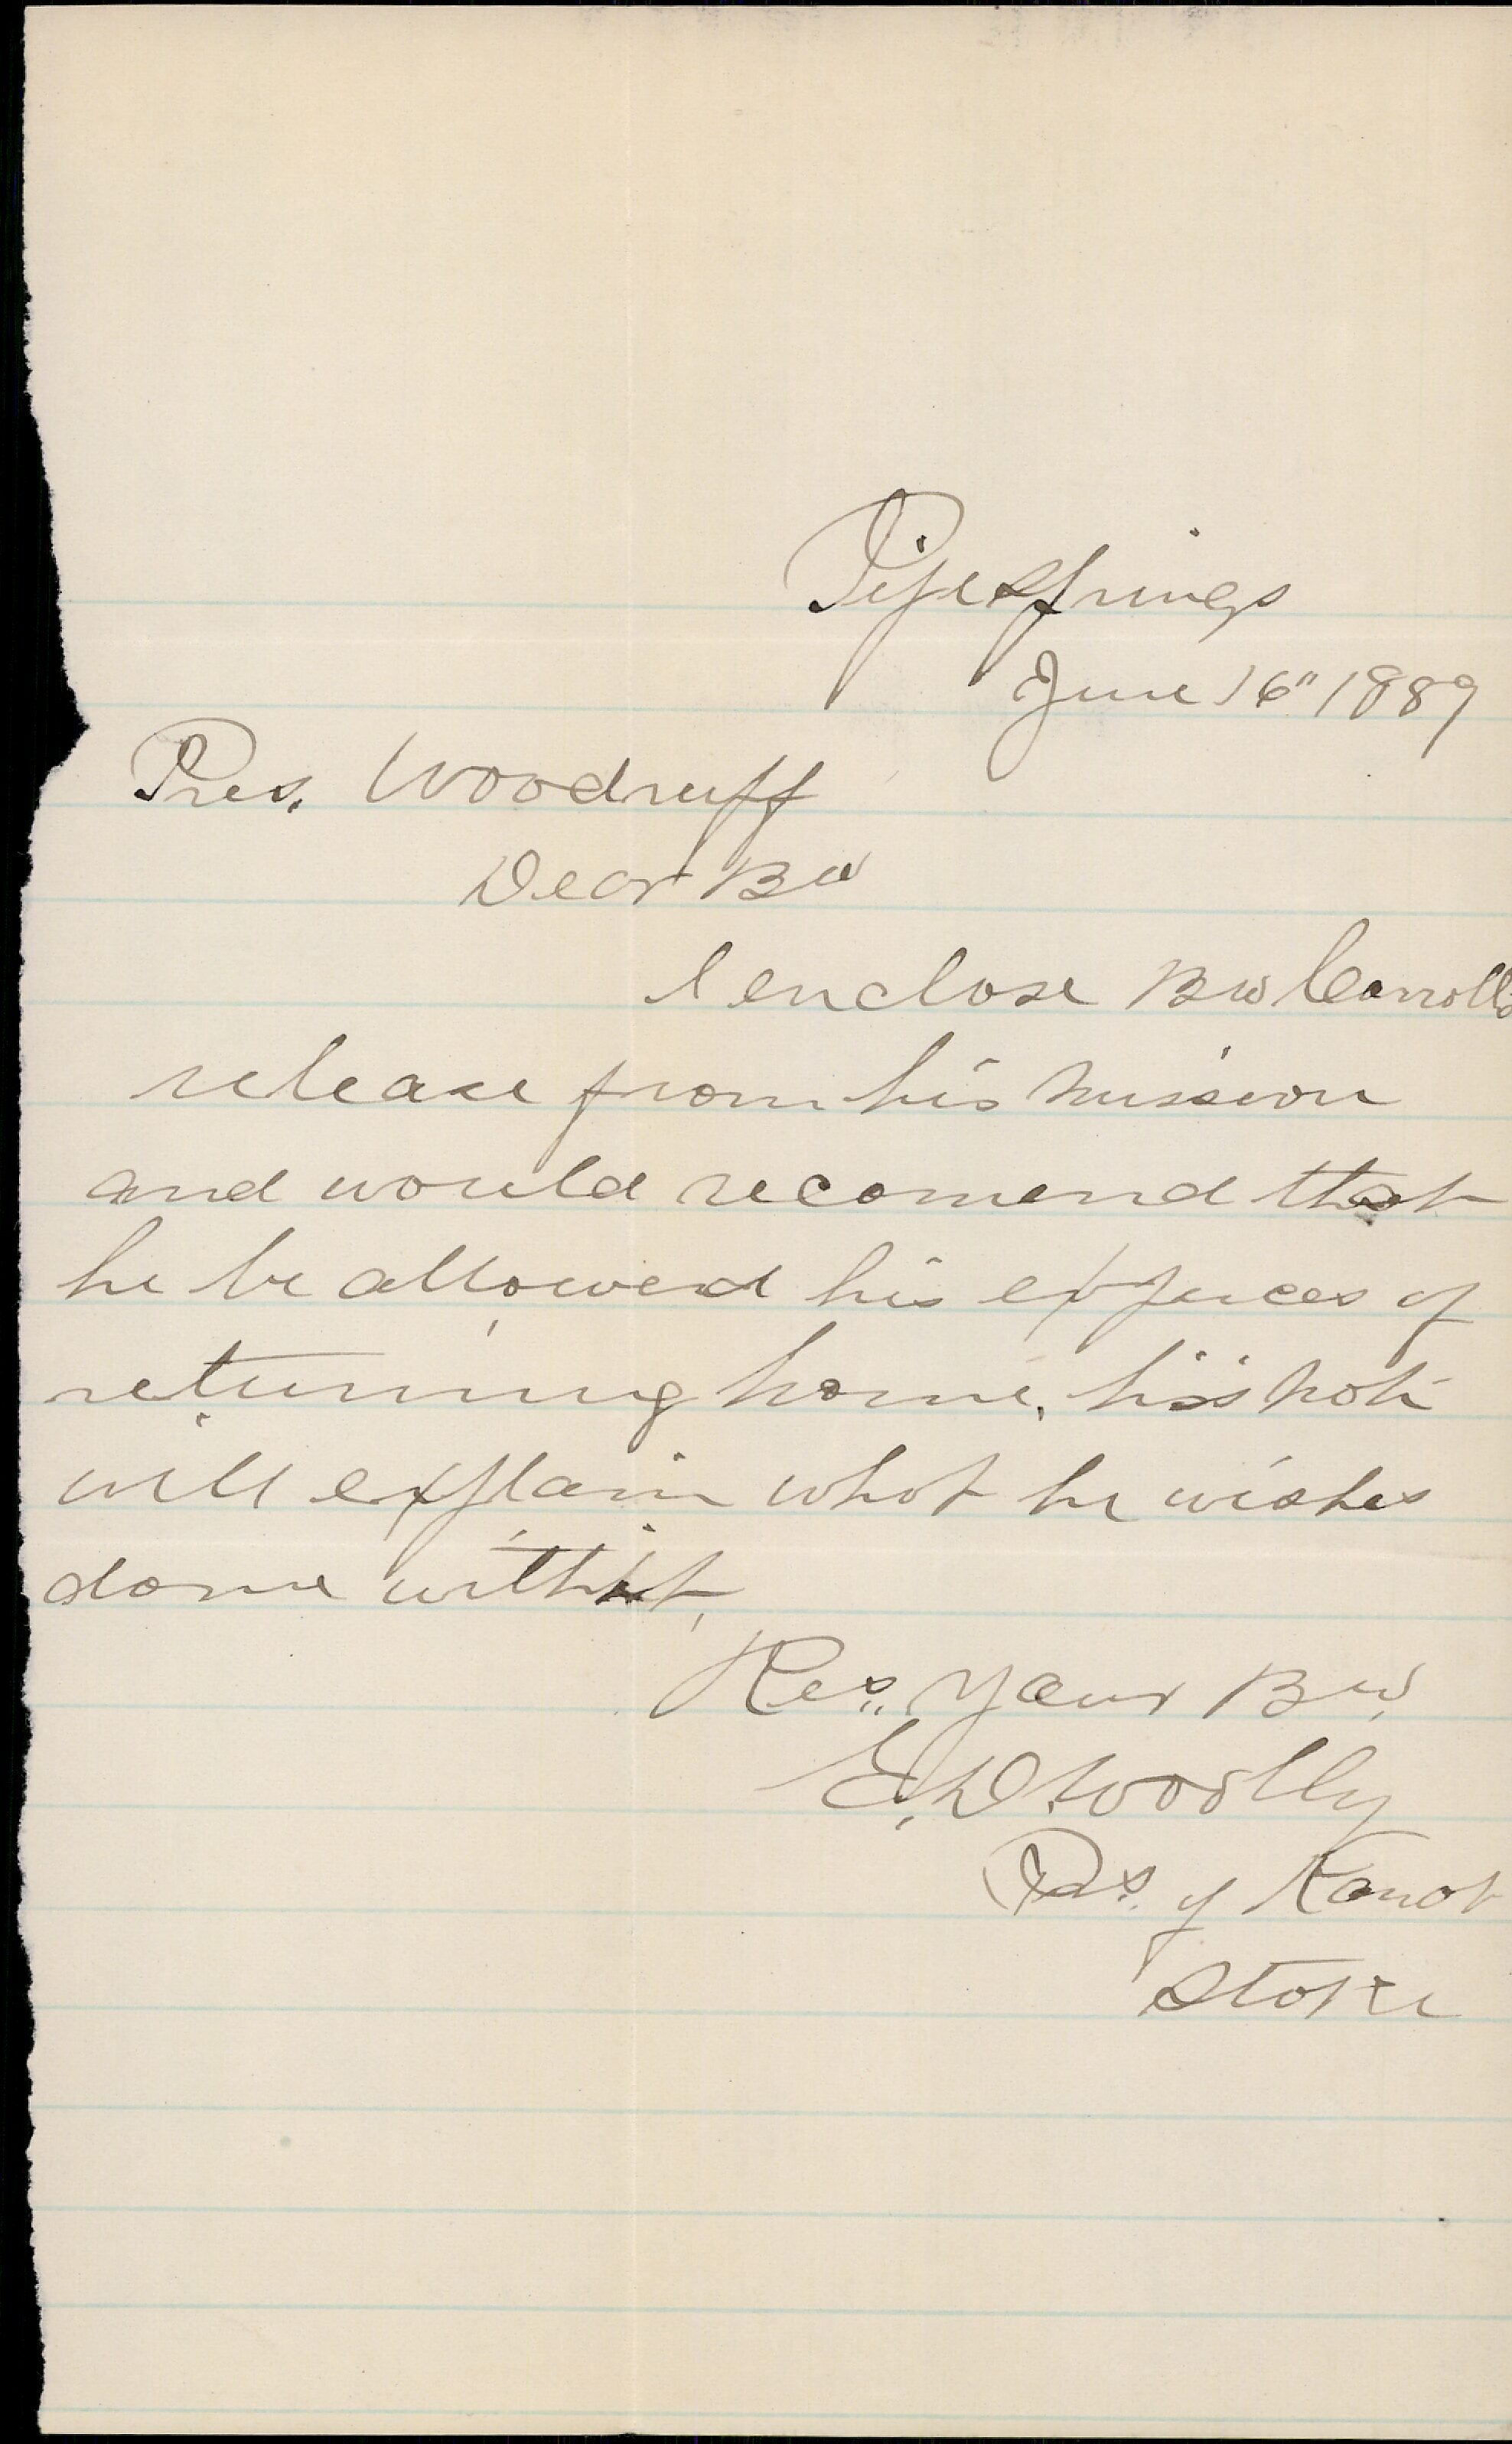 Pipe Springs
June 16" 1889
Pres. Woodruff
Dear Bro
I enclose Bro Carrolls
release from his mission
and would recomend that
he be allowed his expences of
returning home, his note
will explain what he wishes
done with it.
Res. Your Bro,
E. D. Woolly
Pres. of Kanab
Stake